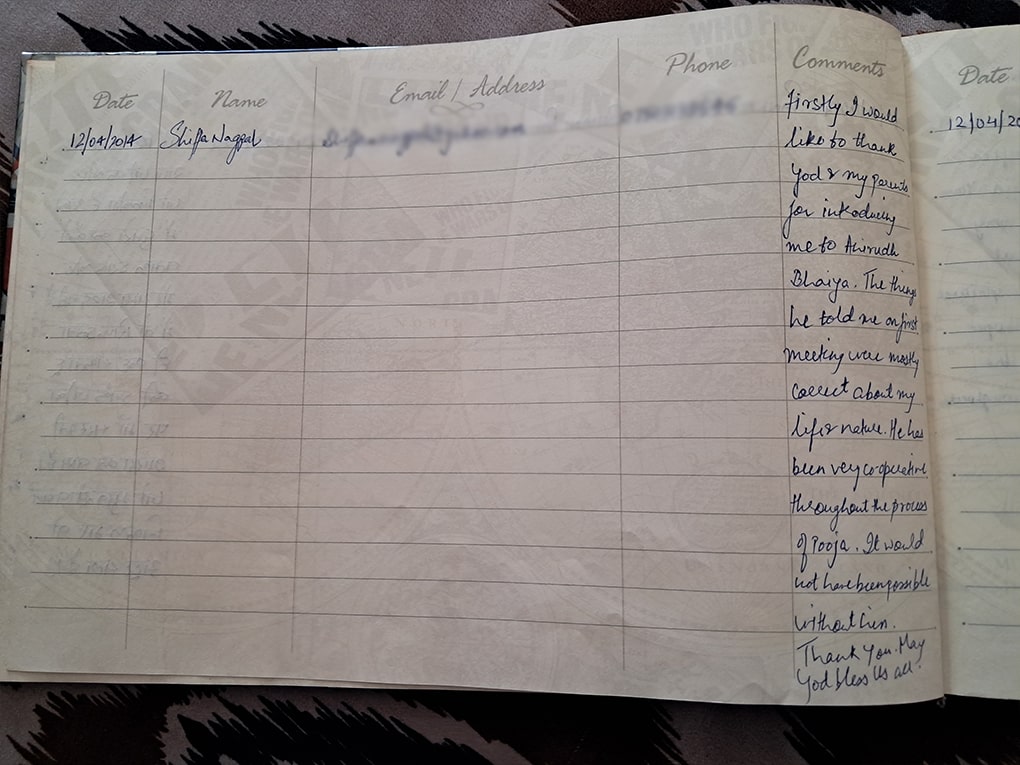 Date Name Email / Address Phone Comments Date
12/04/2014 Shilpa Nagpal 12/04/20
firstly I would
like to thank
God & my parents
for introducing
me to Anirudh
Bhaiya. The things
he told me on first
meeting were mostly
correct about my
life & nature. He has
been very co-operative
throughout the process
of Pooja. It would
not have been possible
without him.
Thank You. May
God bless us all.